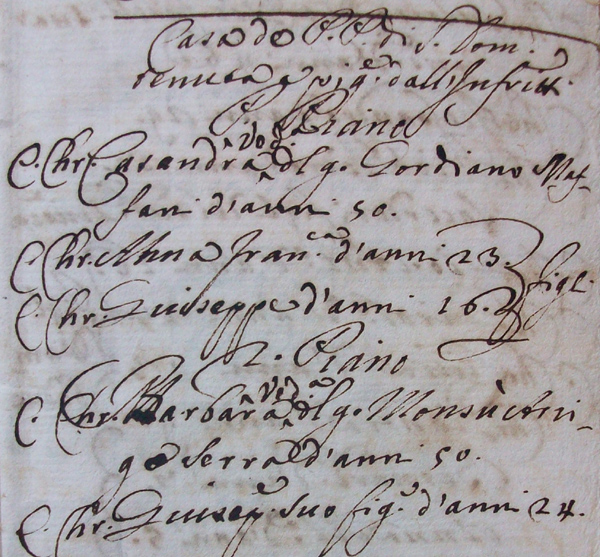 Casa de P.P. di S. Dom.
tenuta a pig.e dall'Infritti
P. Piano
C. Chr. Casandra ved.a dlg. Gordiano Maf-
fani d'anni 50.
C. Chr. Anna Fran.ca d'anni 23.
figl.
C. Chr. Giuseppe d'anni 16.
2. Piano
C. Chr. Barbara ved.a dlg. Monsù Arri-
go Serra d'anni 50.
C. Chr. Giusep.e suo fig.o d'anni 24.